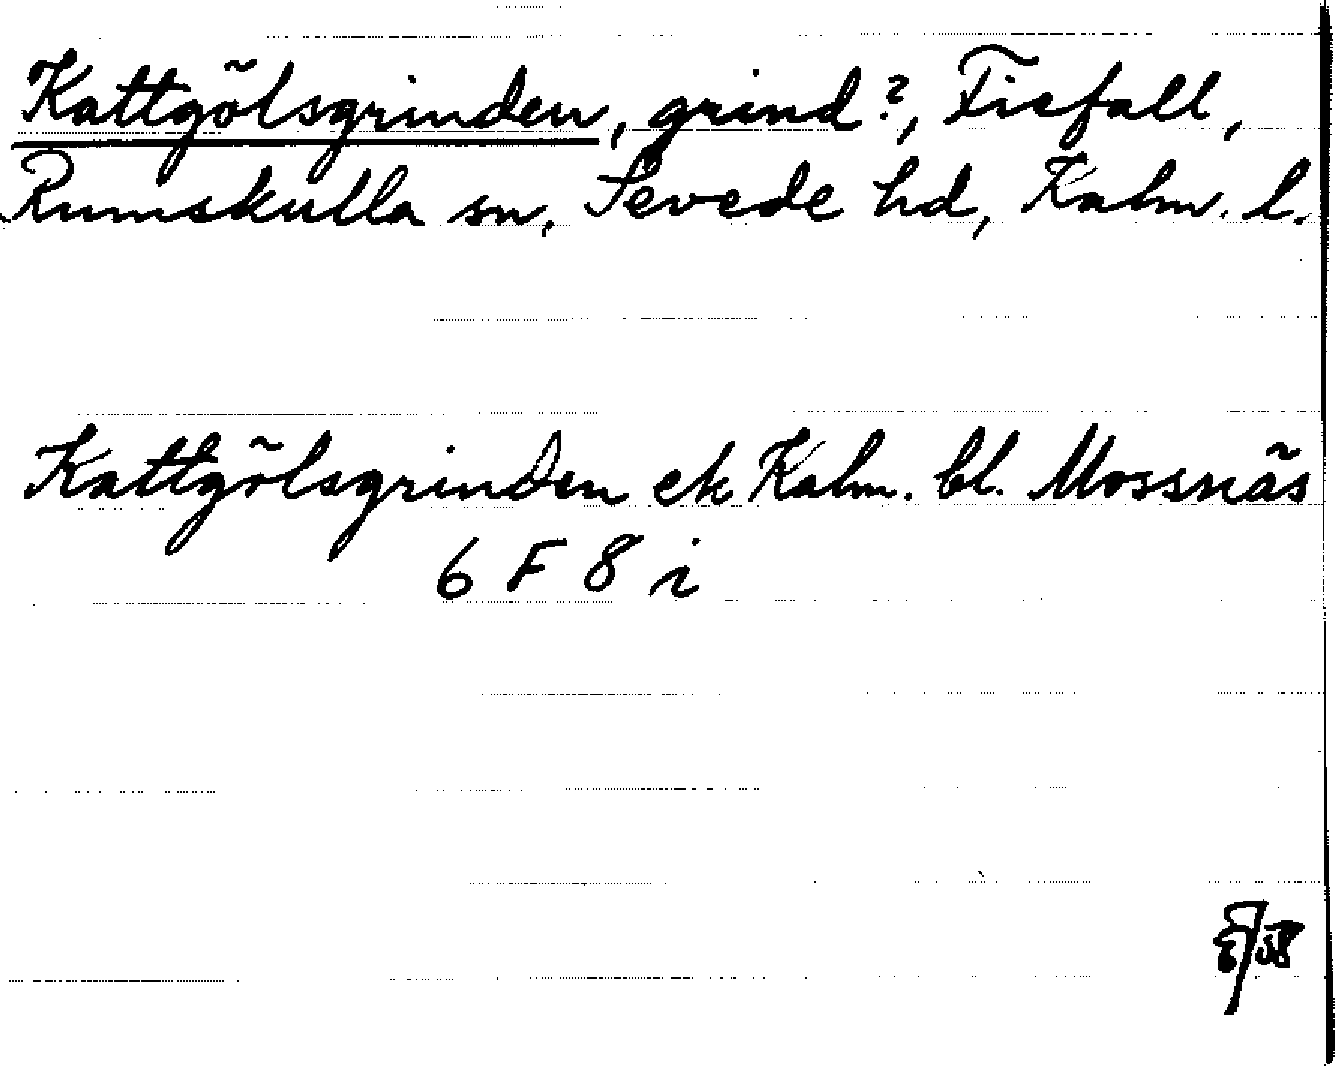 Kattgölsgrinden, grind?, Fiefall,
Rumskulla sn, Sevede hd, Kalm. l.
Kattgölsgrinden ek Kalm. bl. Mossnäs
6 F 8 i